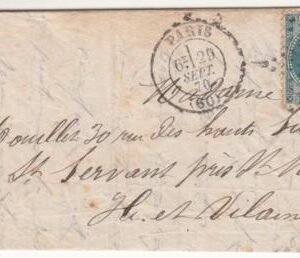 PARIS
1
6E/29
SEPT.
70
(60)
Madame
Rouillet 30 rue des hauts
St Servant près St
Ile et Vilaine